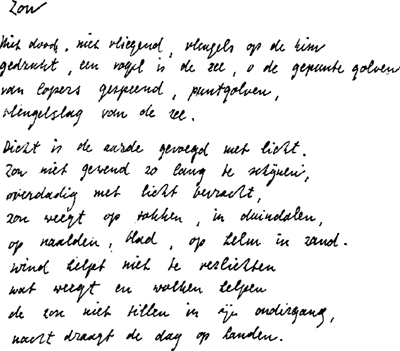 Zon
Niet doods, niet vliegend, vleugels op de kim
gedrukt, een vogel is de zee, o de gepunte golven
van lopers gespeend, puntgolven,
vleugelslag van de zee.
Dicht is de aarde gevoegd met licht.
Zon niet gewend zo lang te schijnen,
overdadig met licht bevracht,
zon weegt op takken, in duindalen,
op naalden, blad, op helm in zand.
Wind helpt niet te verlichten
wat weegt en wolken helpen
de zon niet tillen in zijn ondergang,
nacht draagt de dag op handen.